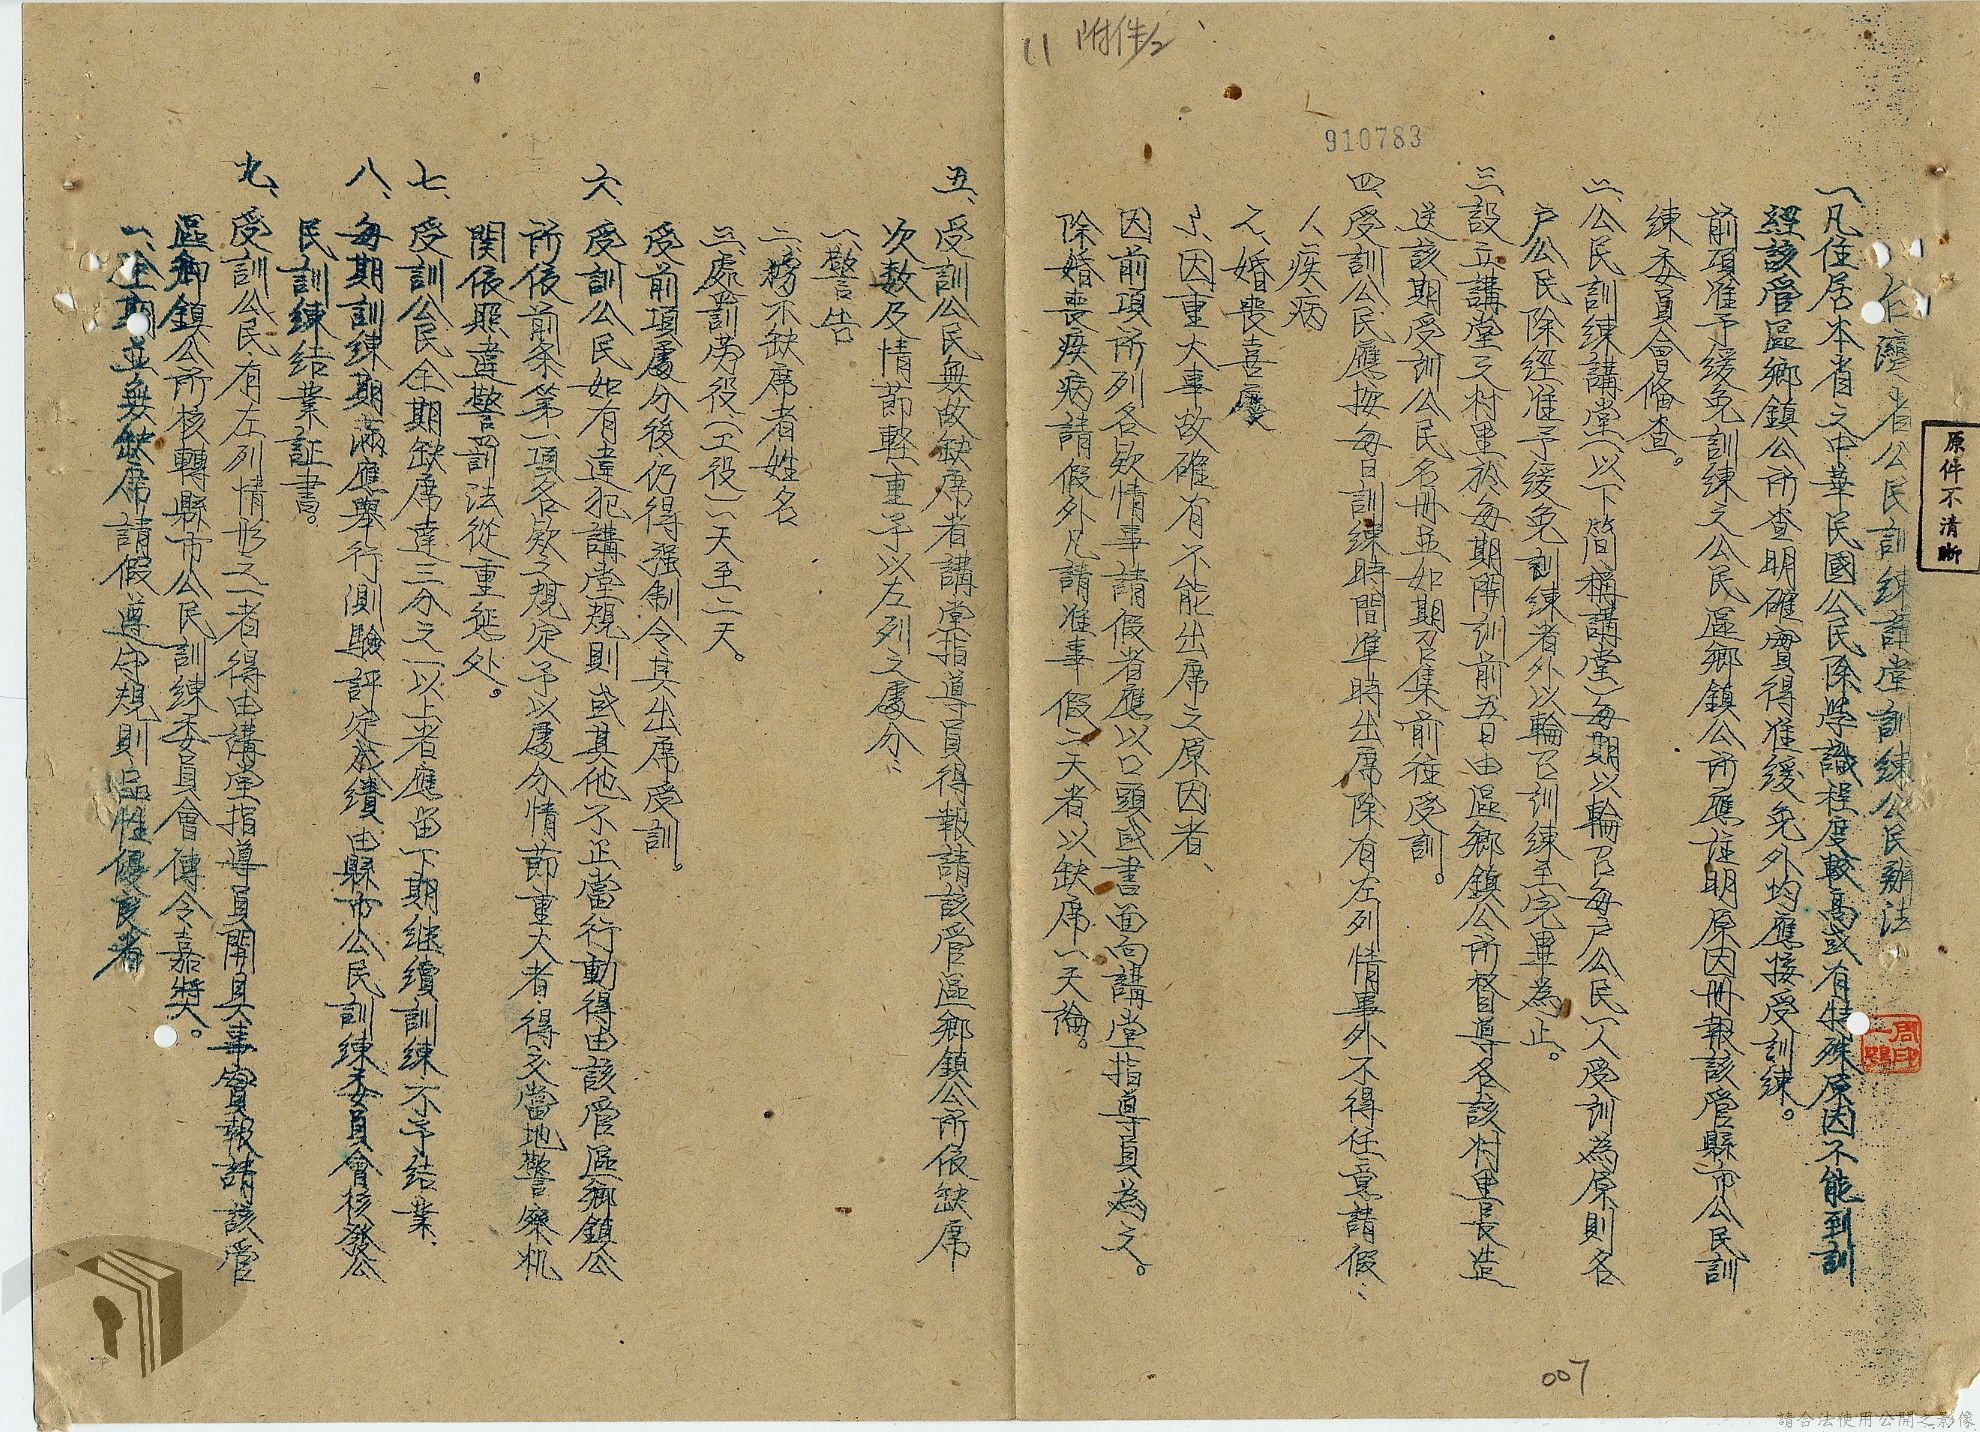 附件2
11
910783
原件不清晰
台灣省公民訓練講堂訓練公民辦法
一、凡住居本省之中華民國公民除學識程度較高或有特殊原因不能到訓
經該管區鄉鎮公所查明確實得准緩免外均應接受訓練。
前項准予緩免訓練之公民區鄉鎮公所應註明原因冊報該管縣市公民訓
練委員會備查。
二、公民訓練講堂(以下簡稱講堂)每期以輪召每戶公民一人受訓為原則各
戶公民除經准予緩免訓練者外以輪召訓練至完畢為止。
三、設立講堂之村里於每期開訓前五日由區鄉鎮公所督導各該村里長造
送該期受訓公民名冊並如期召集前往受訓。
四、受訓公民應按每日訓練時間準時出席除有左列情事外不得任意請假:
1、疾病
2、婚喪喜慶
3、因重大事故確有不能出席之原因者、
因前項所列各款情事請假者應以口頭或書面向講堂指導員為之。
除婚喪疾病請假外凡請准事假二天者以缺席一天論。
五、受訓公民無故缺席者講堂指導員得報請該管區鄉鎮公所依缺席
次數及情節輕重予以左列之處分:
一、警告
二、榜示缺席者姓名
三、處罰勞役(工役)一天至二天。
受前項處分後仍得强制令其出席受訓。
六、受訓公民如有違犯講堂規則或其他不正當行動得由該管區鄉鎮公
所依前条第一項各款之規定予以處分情節重大者得交當地警察机
関依照違警罰法從重懲处。
七、受訓公民全期缺席達三分之一以上者應留下期继續訓練不予結業.
八、每期訓練期滿應舉行測驗評定成績由縣市公民訓練委員會核發公
民訓練结業証書。
九、受訓公民有左列情形之一者得由講堂指導員開具事實報請該管
區鄉鎮公所核轉縣市公民訓練委員會傳令嘉獎。
一、全期並無缺席請假遵守規則品性優良者
007
請合法使用公開之影像